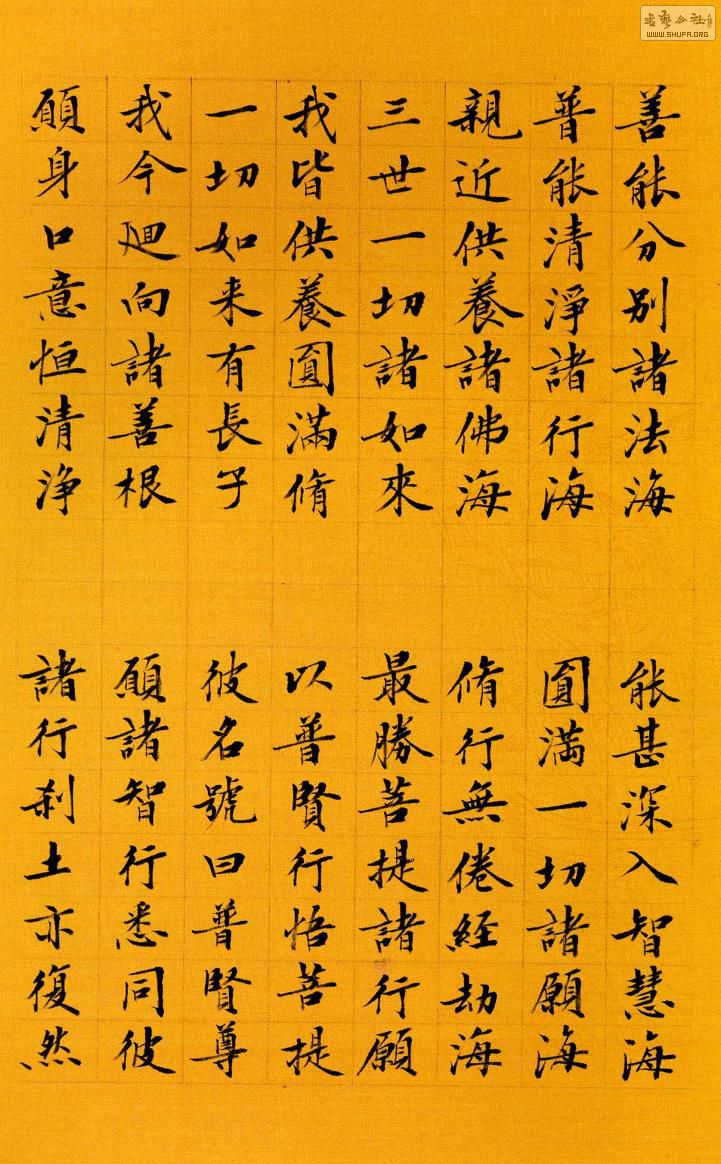 善能分別諸法海　能甚深入智慧海
普能清淨諸行海　圓滿一切諸願海
親近供養諸佛海　脩行無倦經劫海
三世一切諸如來　最勝菩提諸行願
我皆供養圓滿脩　以普賢行悟菩提
一切如来有長子　彼名號曰普賢尊
我今廻向諸善根　願諸智行悉同彼
願身口意恒清浄　諸行刹土亦復然
WWW.SHUFA.ORG